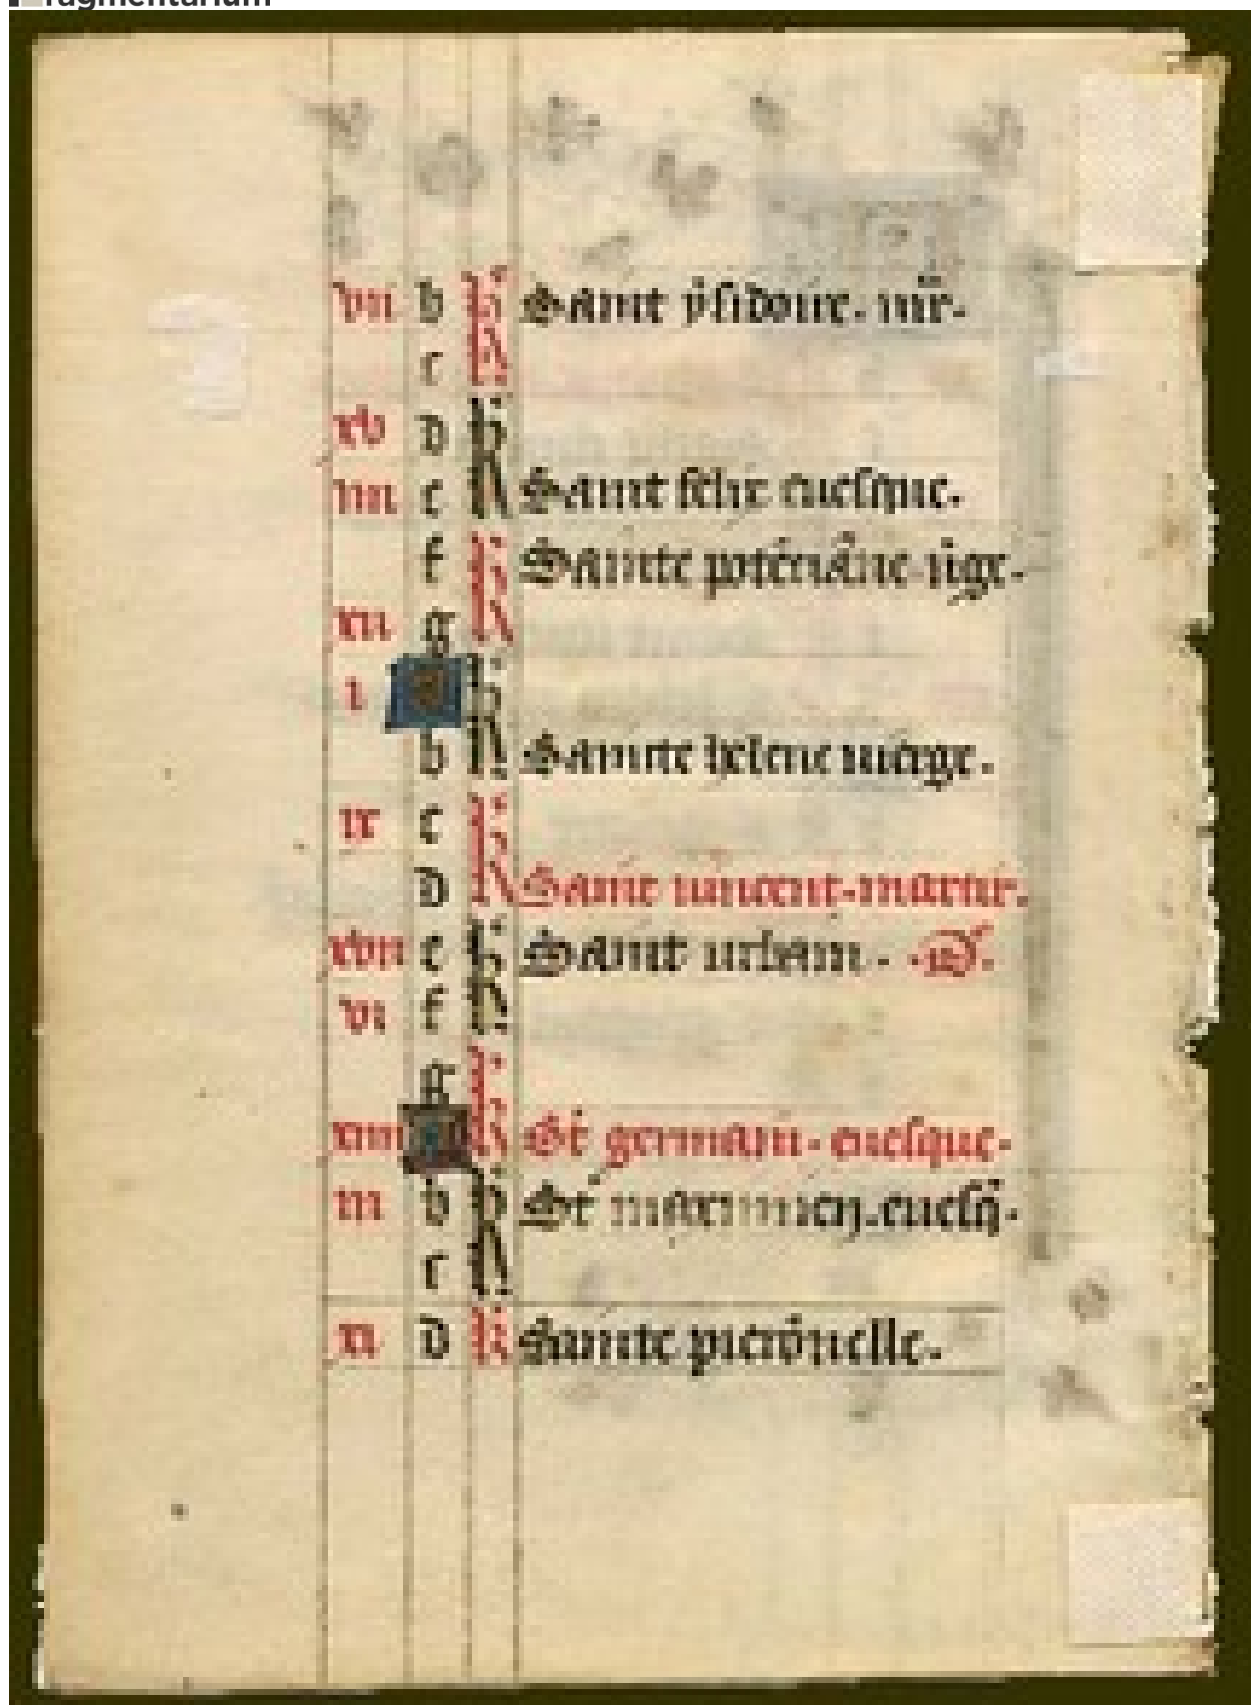 ragmentarium
vii b K Saint ysidoire. mr̄.
c K
xv d K
iiii e K Saint felix euesque.
f K Sainte potēciāne v̇ige.
xii g K
i A K
b K Sainte helene vierge.
ix c K
d K Saint vincent. martir.
xvii e K Saint urbain.
vi f K
g K
xiiii A K St germain. euesque.
iii b K St euesq̄.
c K
xi d K Sainte pierōnelle.